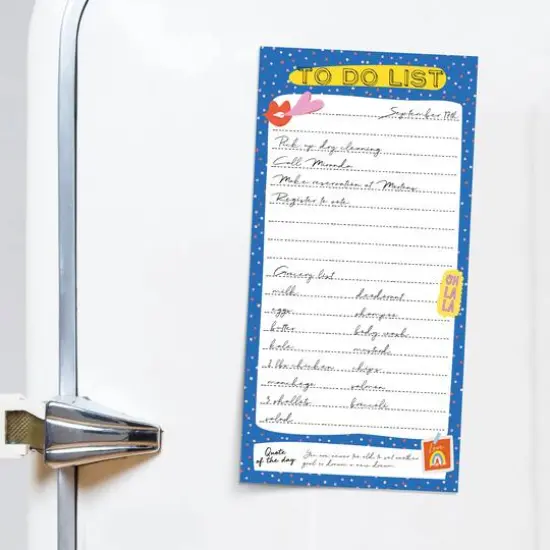 TO DO LIST
September 17th
Pick up dry cleaning
Call Miranda
Make reservation at
Register to vote
Grocery list
milk deodorant
eggs shampoo
butter body wash
kale mustard
2 lbs chicken chips
salmon
shallots broccoli
salad
OH
LA
LA
Quote
of the day
You are never too old to set another
goal or dream a new dream.
love